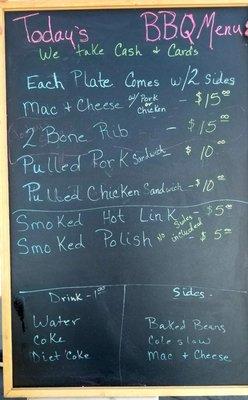 Today's BBQ Menu
We take Cash & Cards
Each Plate Comes w/2 sides
Mac & Cheese w/ Pork or Chicken - $15.00
2 Bone Rib - $15.00
Pulled Pork Sandwich $10.00
Pulled Chicken Sandwich - $10.00
Smoked Hot Link $5.00
Smoked Polish No Sides included $5.00
Drink - 1.00
Water
Coke
Diet Coke
Sides.
Baked Beans
Cole slow
Mac & Cheese